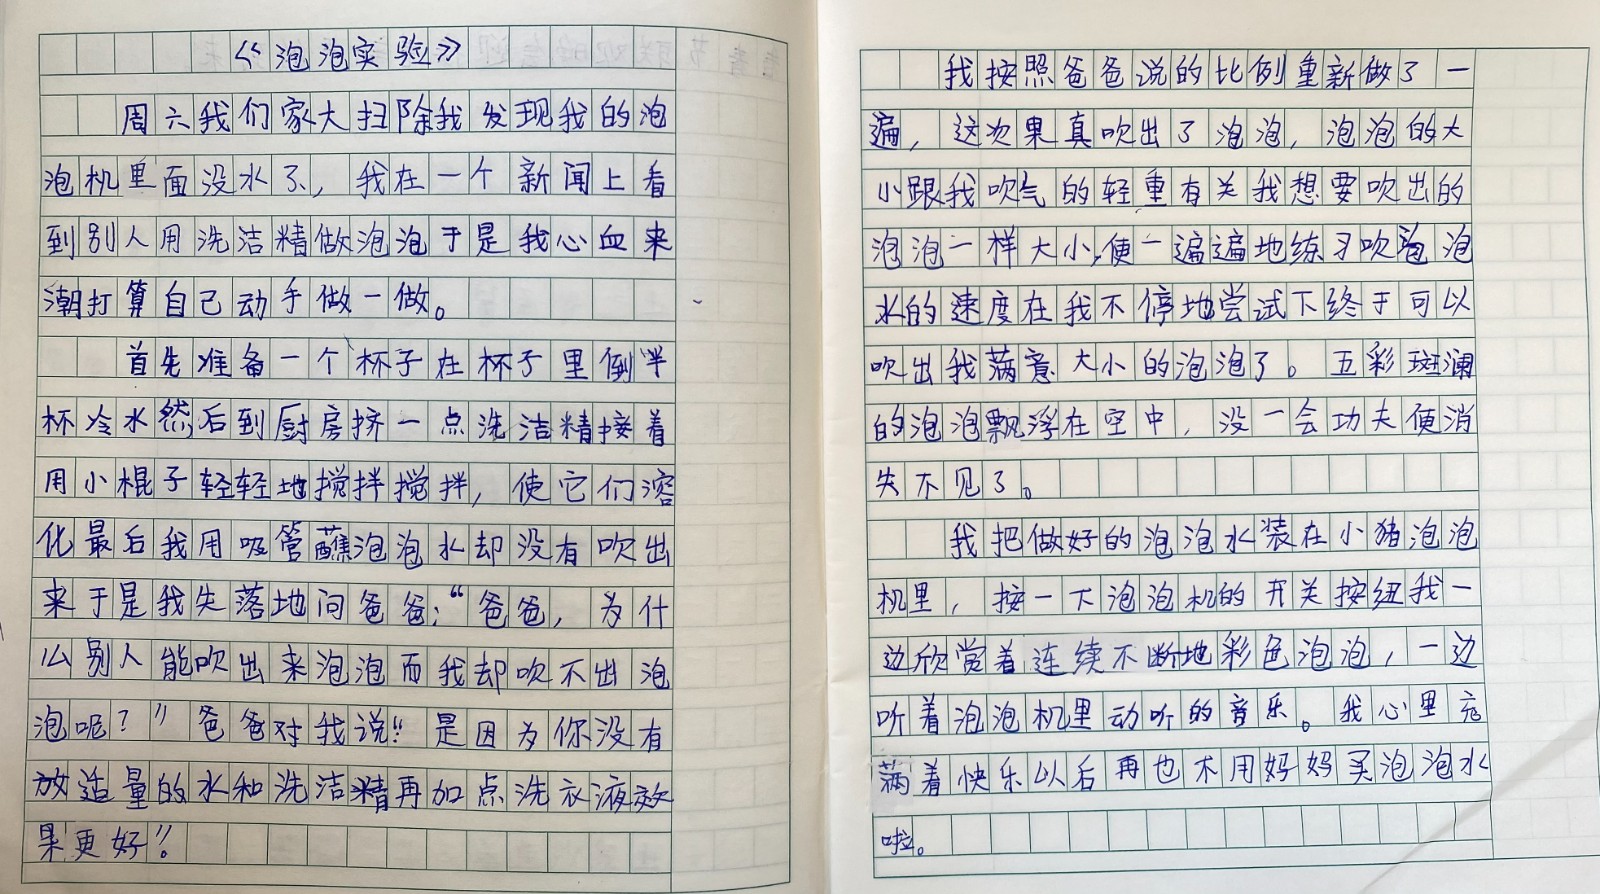 《泡泡实验》
周六我们家大扫除我发现我的泡
泡机里面没水了,我在一个新闻上看
到别人用洗洁精做泡泡于是我心血来
潮打算自己动手做一做。
首先准备一个杯子在杯子里倒半
杯冷水然后到厨房挤一点洗洁精接着
用小棍子轻轻地搅拌搅拌,使它们溶
化最后我用吸管蘸泡泡水却没有吹出
来于是我失落地问爸爸:“爸爸,为什
么别人能吹出来泡泡而我却吹不出泡
泡呢?”爸爸对我说“是因为你没有
放适量的水和洗洁精再加点洗衣液效
果更好”!
我按照爸爸说的比例重新做了一
遍,这次果真吹出了泡泡,泡泡的大
小跟我吹气的轻重有关我想要吹出的
泡泡一样大小,便一遍遍地练习吹泡泡
水的速度在我不停地尝试下终于可以
吹出我满意大小的泡泡了。五彩斑澜
的泡泡飘浮在空中,没一会功夫便消
失不见了。
我把做好的泡泡水装在小猪泡泡
机里,按一下泡泡机的开关按纽我一
边欣赏着连续不断地彩色泡泡,一边
听着泡泡机里动听的音乐。我心里充
满着快乐以后再也不用妈妈买泡泡水
啦。